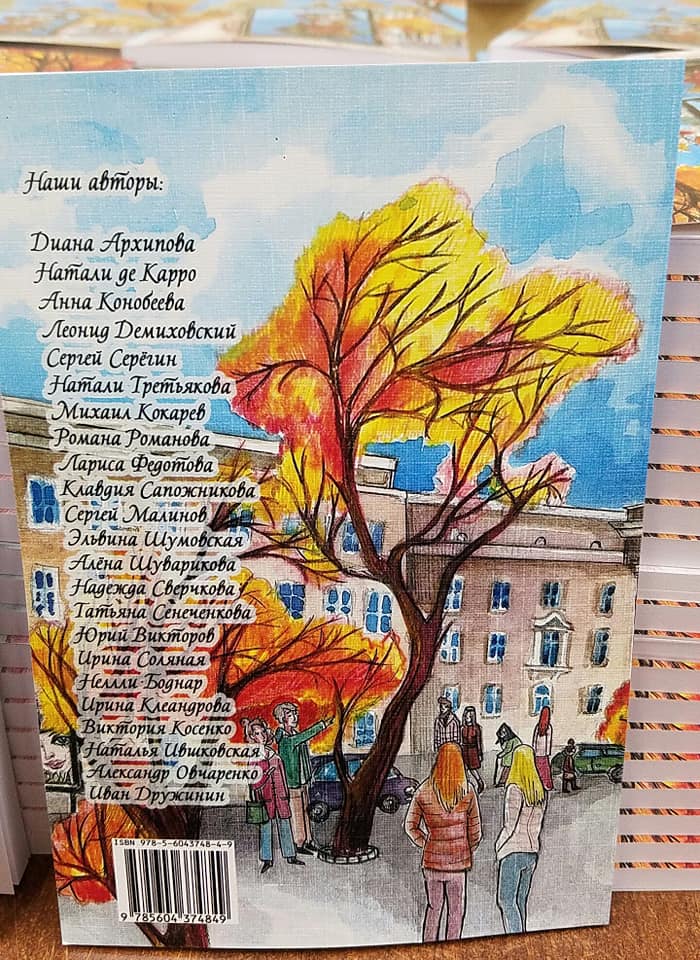 Наши авторы:
Диана Архипова
Натали де Карро
Анна Конобеева
Леонид Демиховский
Сергей Серёгин
Натали Третьякова
Михаил Кокарев
Романа Романова
Лариса Федотова
Клавдия Сапожникова
Сергей Малинов
Эльвина Шумовская
Алёна Шуварикова
Надежда Сверчкова
Татьяна Сенеченкова
Юрий Викторов
Ирина Соляная
Неллли Боднар
Ирина Клеандрова
Виктория Косенко
Наталья Ившковская
Александр Овчаренко
Иван Дружинин
ISBN 978-5-6043748-4-9
9 785604 374849